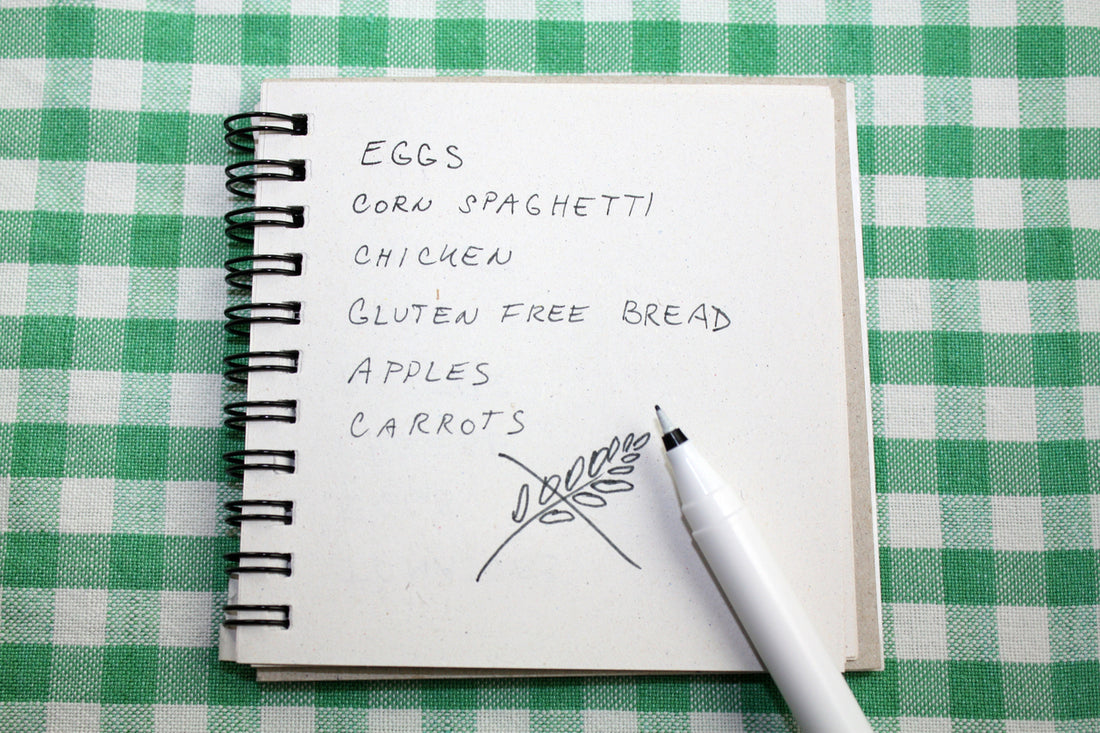 EGGS
CORN SPAGHETTI
CHICKEN
GLUTEN FREE BREAD
APPLES
CARROTS